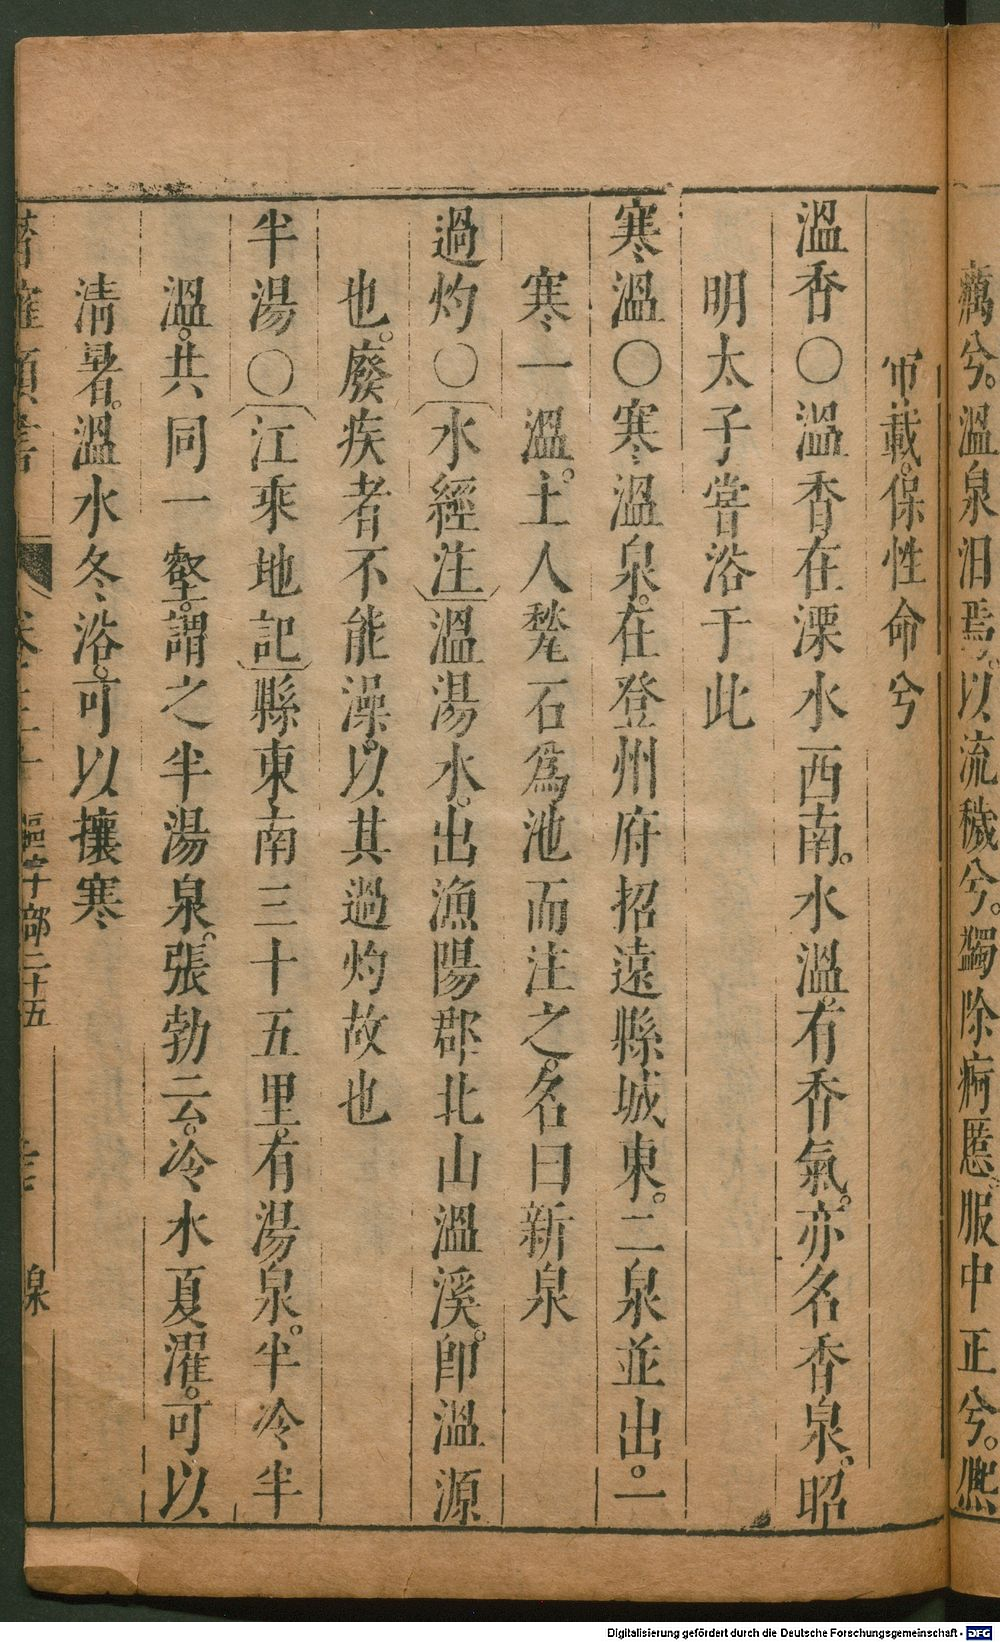 癘兮。溫泉汨焉。以流穢兮。蠲除痾慝。服中正兮。熈
帝載。保性命兮
溫香〇溫香在溧水西南。水溫。有香氣。亦名香泉。昭
明太子嘗浴于此
寒溫〇寒溫泉。在登州府招遠縣城東。二泉並出。一
寒一溫。土人甃石爲池而注之。名曰新泉
過灼〇水經注溫湯水。出漁陽郡北山溫溪。卽溫源
也。廢疾者不能澡。以其過灼故也
半湯〇江乘地記縣東南三十五里。有湯泉。半冷半
溫。共同一壑。謂之半湯泉。張勃云。冷水夏濯。可以
淸暑。溫水冬浴。可以攘寒
潛確類書 卷三十 區宇部二十五 泉
Digitalisierung gefördert durch die Deutsche Forschungsgemeinschaft - DFG